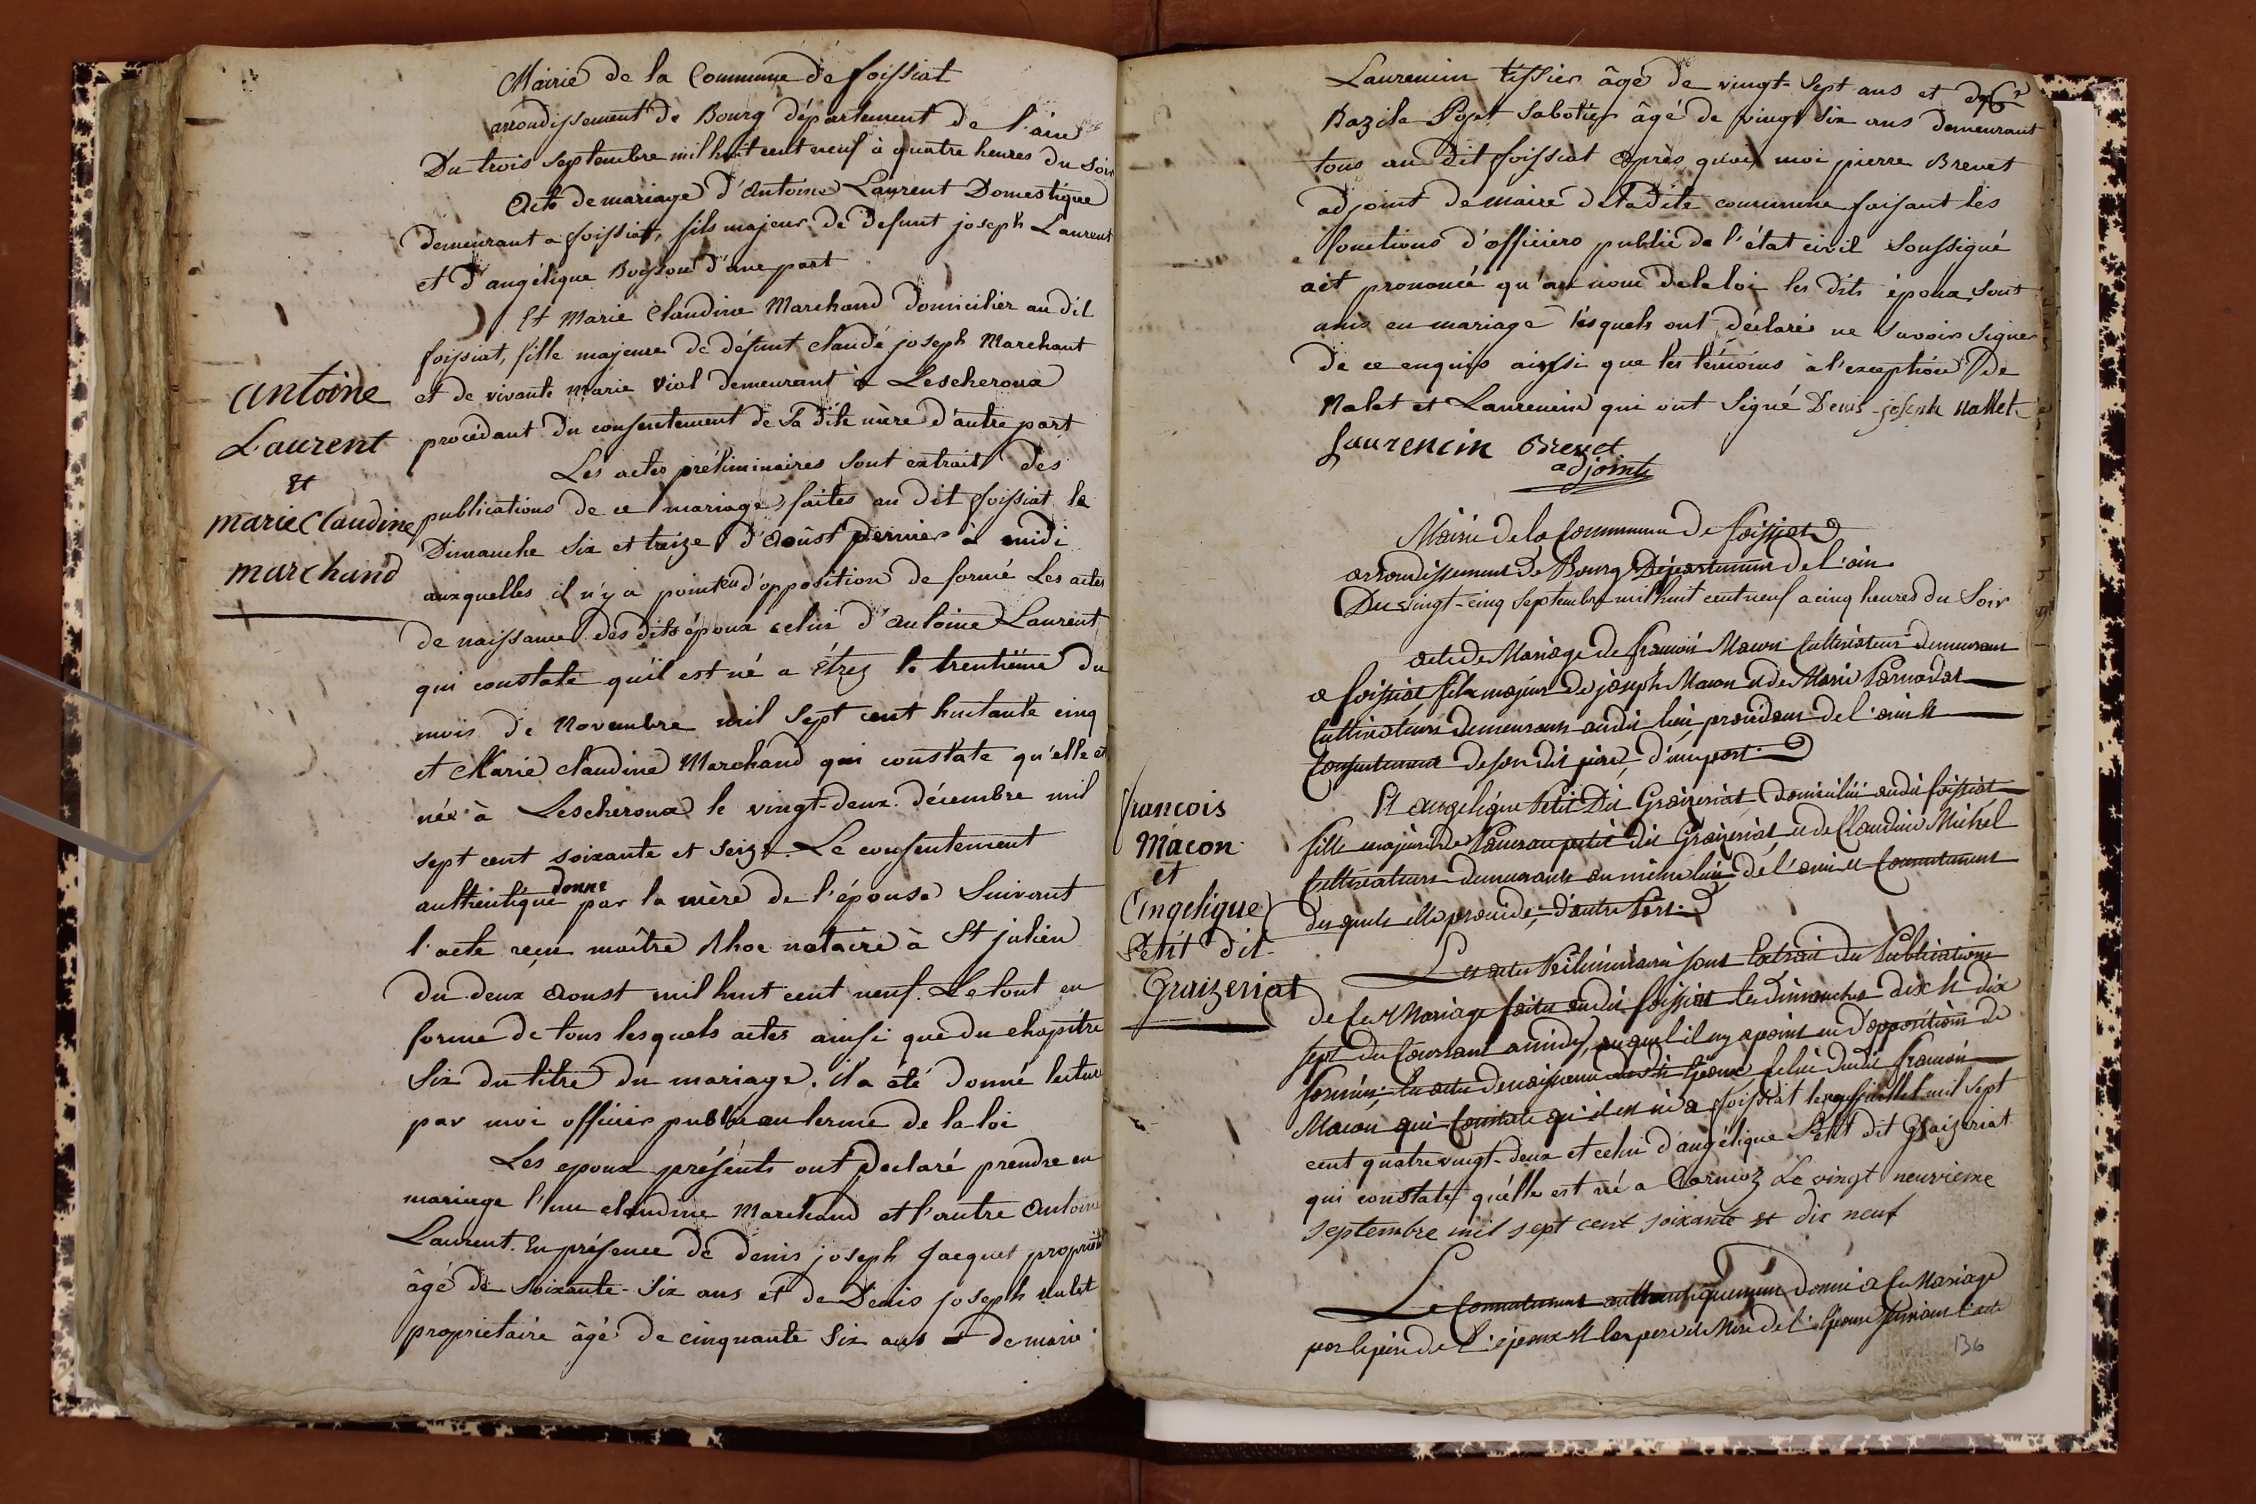 Mairie de la Commune de foissiat
arrondissement de Bourg département de l'ain
Du trois septembre mil huit cent neuf à quatre heures du soir
Acte de mariage d'Antoine Laurent Domestique
demeurant a foissiat, fils majeur de defunt joseph Laurent
et d'angélique Buisson d'une part
Et Marie Claudine Marchand domicilier au dit
foissiat, fille majeure de défunt claude joseph Marchant
et de vivante marie Viol demeurant à Lescheroux
procédant du consentement de sa dite mère d'autre part
Les actes préliminaires sont extrait des
publications de ce mariage faites au dit foissiat le
Dimanche six et treize d'Aoust dernier à midi
auxquelles il n'y a point eu d'opposition de formé Les actes
de naissance des dits époux celui d'antoine Laurent
qui constate qu'il est né a étrez le trentième du
mois de Novembre mil sept cent huitante cinq
et Marie claudine Marchand qui constate qu'elle est
née à Lescheroux le vingt-deux décembre mil
sept cent soixante et seize. Le consentement
authentique donné par la mère de l'épouse Suivant
l'acte reçu maître Rhoe notaire à St julien
du deux Aoust mil huit cent neuf. Le tout en
forme de tous lesquels actes ainsi que du chapitre
Six du titre du mariage. il a été donné lecture
par moi officier public au terme de la loi
Les epoux présents ont declaré prendre en
mariage l'un claudine Marchand et l'autre Antoine
Laurent. En présence de denis joseph Jacquet propriét
âgé de Soixante-Six ans et de Denis joseph nalet
proprietaire âgé de cinquante Six ans et de marie
antoine
Laurent
et
marie Claudine
marchand
Laurencin tissier âgé de vingt-sept ans et de
Bazile Pojet Sabotier âgé de vingt Six ans demeurant
tous au dit foissiat Après quoi moi pierre Brevet
adjoint de maire de ladite commune faisant les
fonctions d'officiers public de l'état civil Soussigné
ait prononcé qu'au nom de la loi les dits époux sont
unis en mariage lesquels ont déclarés ne savoir signer
de ce enquis ainssi que les témoins à l'exception de
Nalet et Laurencin qui ont signé Denis-joseph nallet
Laurencin Brevet
adjoint
Mairie de la Commune de foissiat
arrondissement de Bourg Département de l'ain
Du vingt-cinq septembre mil huit cent neuf a cinq heures du Soir
acte de Mariage de françois Macon Cultivateur demeurant
a foissiat fils majeur de joseph Macon et de Marie
Cultivateurs demeurants audit lieu procédant de l'avis et
Consentement de son dit père, d'une part.
Et angelique Petit Dit Graizeriat domiciliée audit foissiat
fille majeure de petit dit Graizeriat et de Claudine Michel
Cultivateurs demeurants au même lieu, de l'avis et Consentement
desquels elle procède, d'autre Part.
Les actes Préliminaires sont Extrait des Publications
de ce Mariage faites audit foissiat les dimanches dix et dix
sept du Courrant a midy, auquel il ny a point eu d'opposition de
formée; les actes de naissance des dits Epoux, celui dudit françois
Macon qui Constate qu'il est né a foissiat le juillet mil sept
cent quatre vingt-deux et celui d'angélique Petit dit Graizeriat
qui constate qu'elle est né a Cormoz Le vingt neuvieme
septembre mil sept cent soixante et dix neuf
Le Consentement authentiquement donné a ce Mariage
par le père de l'époux et les père et Mère de l'Epouse suivant l'acte
françois
Macon
et
Angelique
Petit dit
Graizeriat
136